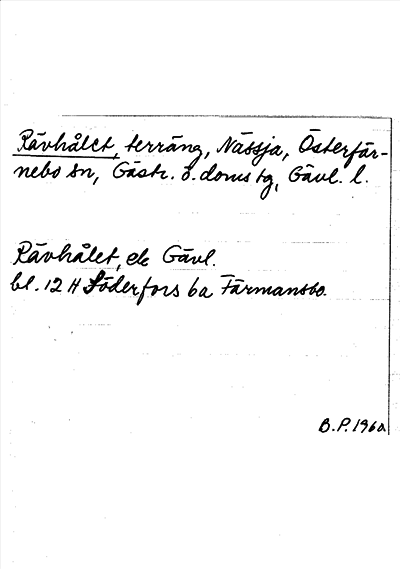 Rävhålet, terräng, Nässja, Österfär-
nebo sn, Gästr. ö. doms tg, Gävl. l.
Rävhålet, ek Gävl.
bl. 12 H Söderfors ba Färmansbo.
B.P. 1960